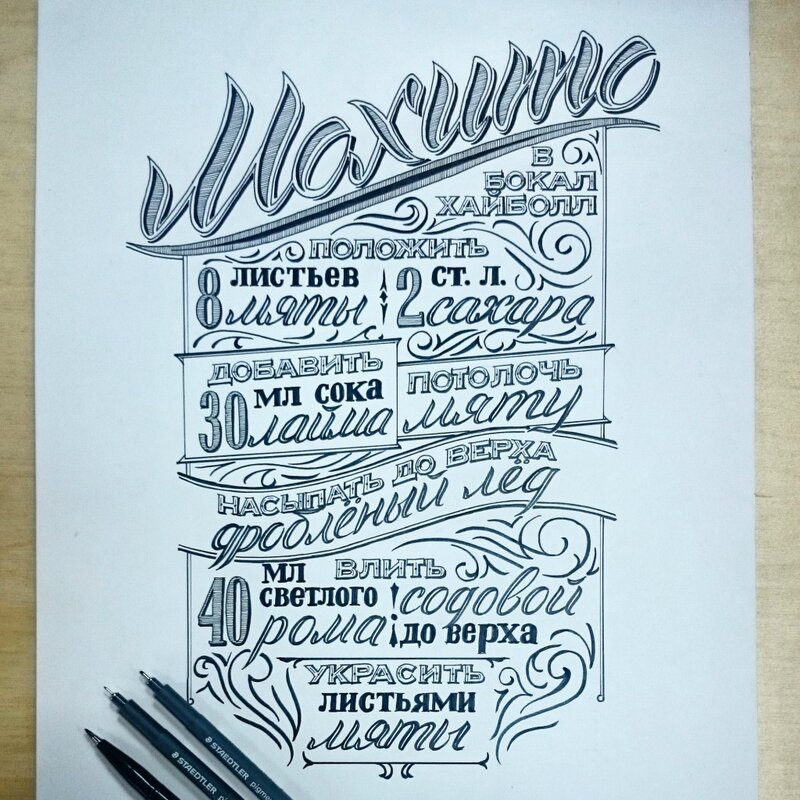 Мохито
В
БОКАЛ
ХАЙБОЛЛ
ПОЛОЖИТЬ
8 листьев мяты
2 ст. л. сахара
ДОБАВИТЬ
30 мл сока лайма
ПОТОЛОЧЬ
мяту
НАСЫПАТЬ ДО ВЕРХА
дроблёный лёд
ВЛИТЬ
40 мл светлого рома
содовой
до верха
УКРАСИТЬ
листьями
мяты
STAEDTLER pigment
STAEDTLER pigm